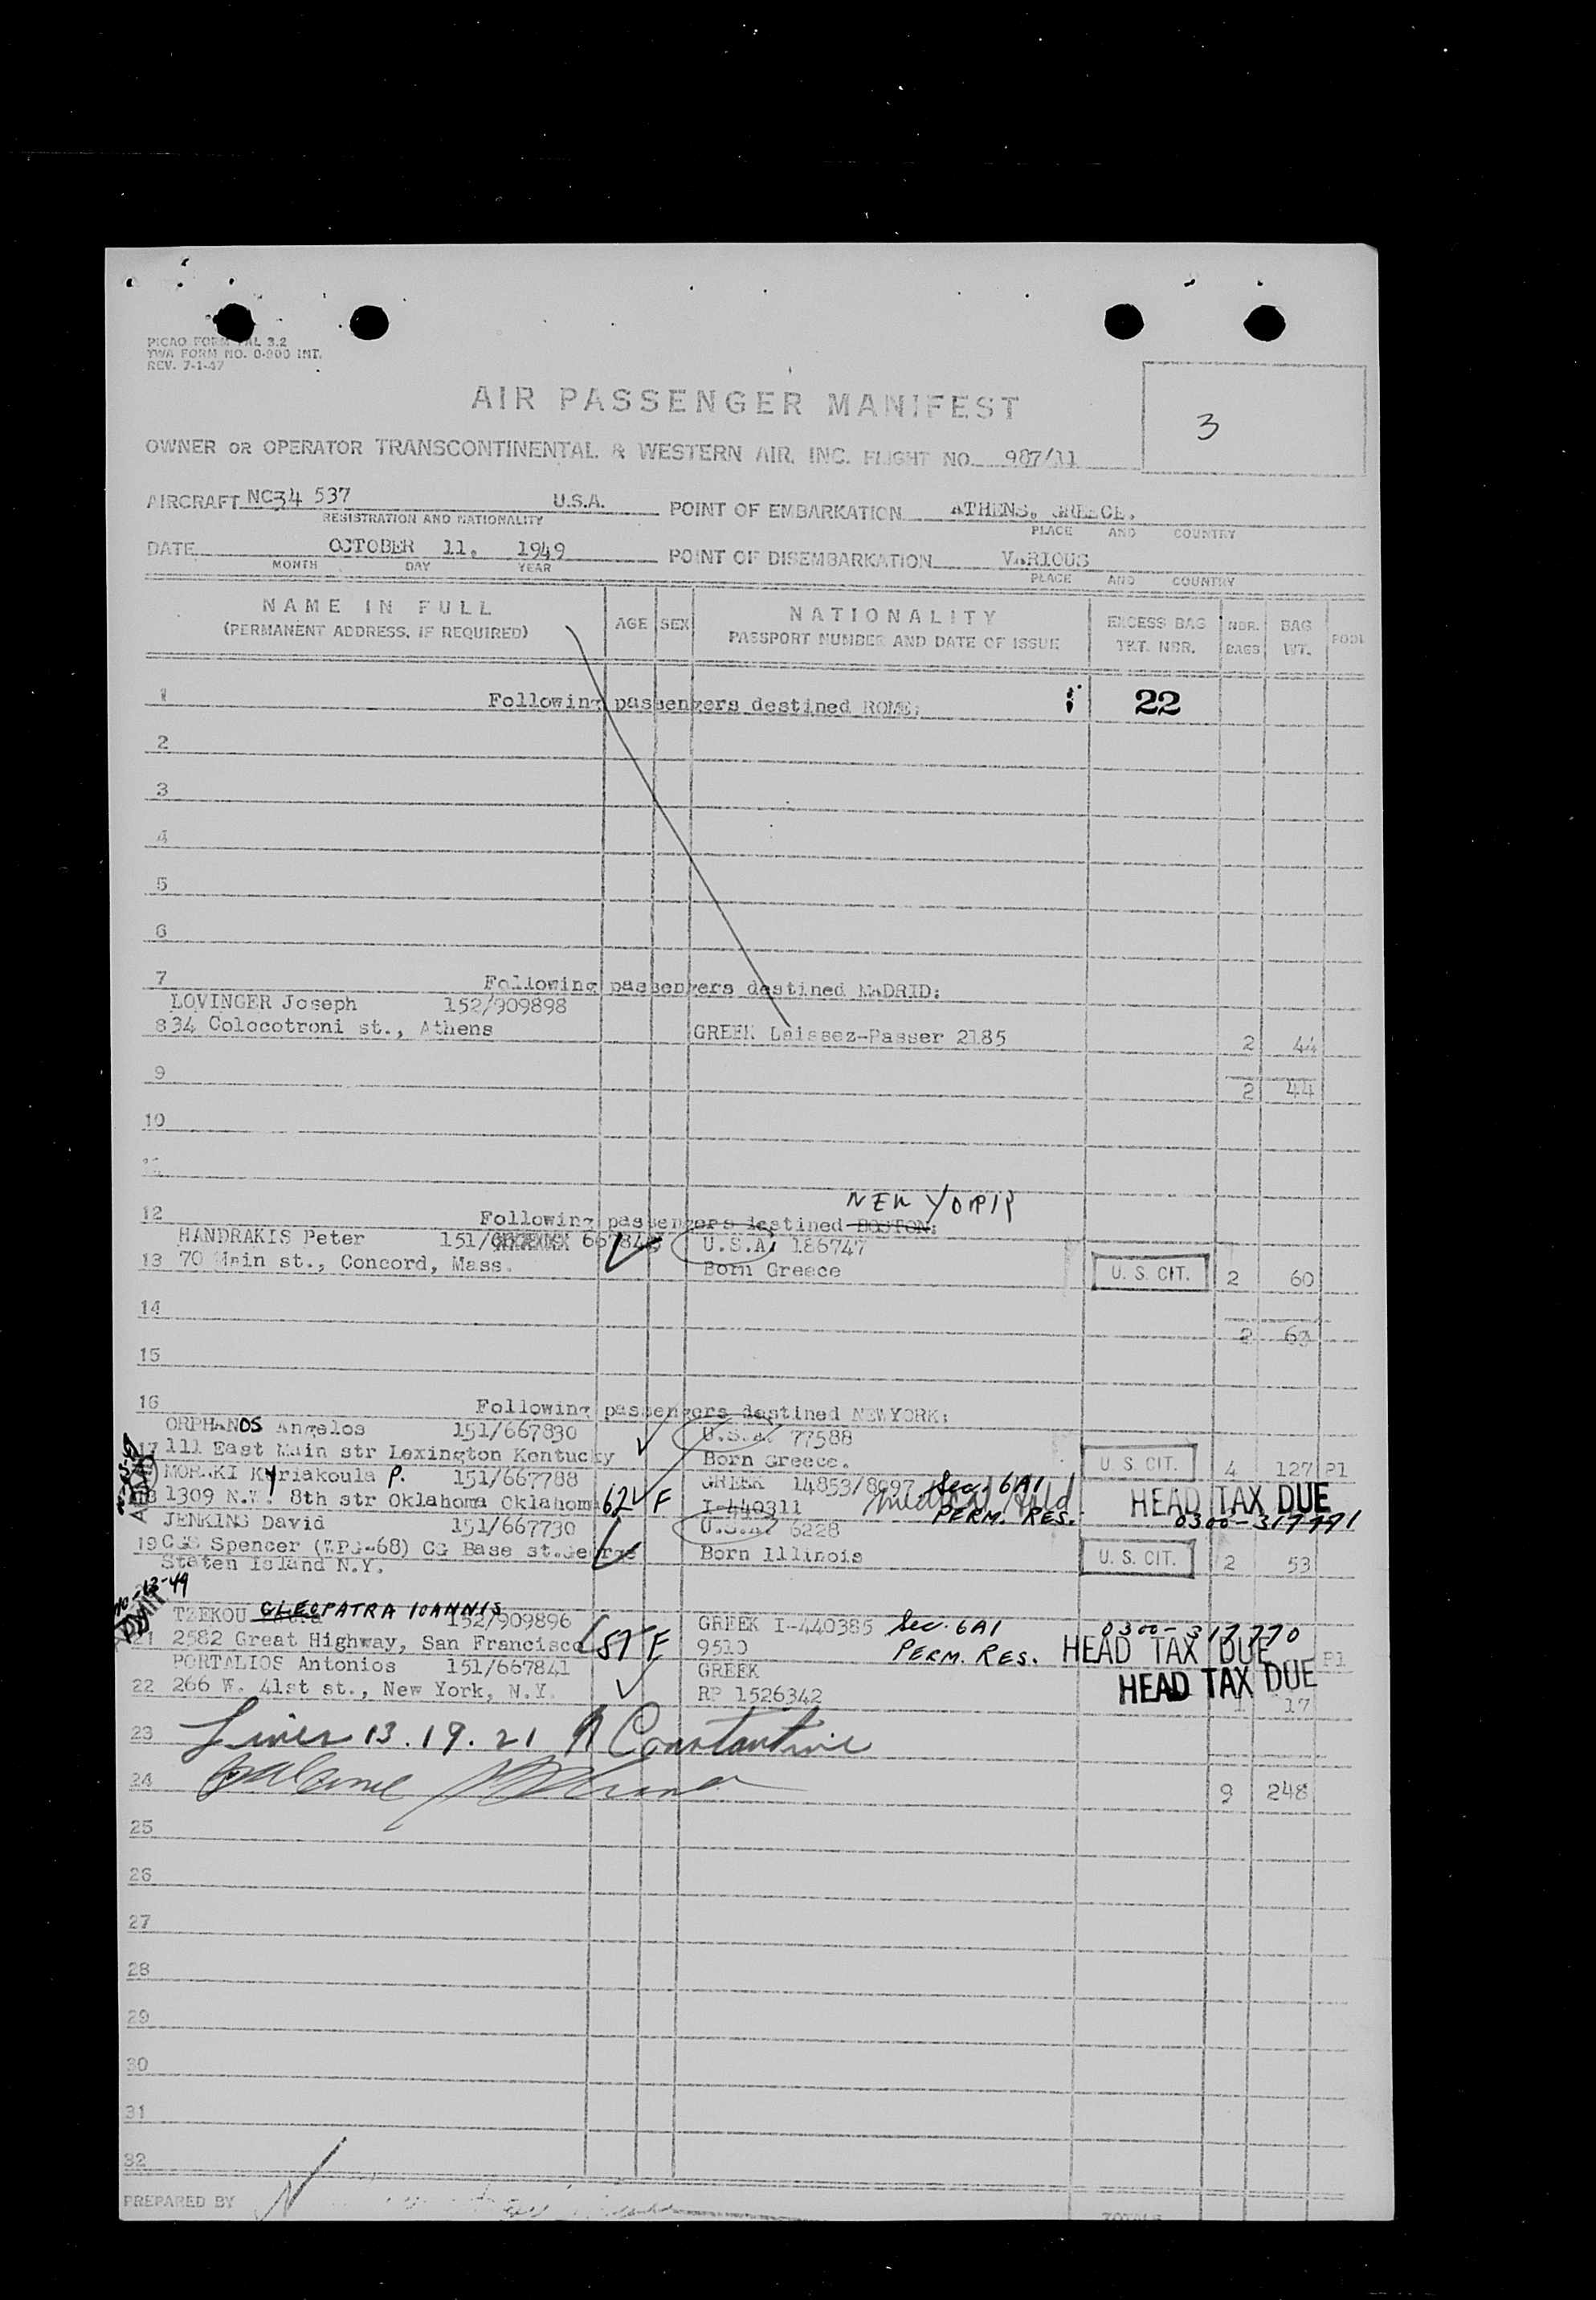 PICAO FORM FAL 3.2
TWA FORM NO. 0-900 INT.
REV. 7-1-47
AIR PASSENGER MANIFEST
3
OWNER OR OPERATOR TRANSCONTINENTAL & WESTERN AIR, INC. FLIGHT NO. 987/11
AIRCRAFT NC34 537 U.S.A. POINT OF EMBARKATION ATHENS, GREECE.
REGISTRATION AND NATIONALITY PLACE AND COUNTRY
DATE OCTOBER 11, 1949 POINT OF DISEMBARKATION VARIOUS
MONTH DAY YEAR PLACE AND COUNTRY
NAME IN FULL AGE SEX NATIONALITY EXCESS BAG NBR. BAG
(PERMANENT ADDRESS, IF REQUIRED) PASSPORT NUMBER AND DATE OF ISSUE TKT. NBR. BAGS WT.
1 Following passengers destined ROME: 22
2
3
4
5
6
7 Following passengers destined MADRID:
LOVINGER Joseph 152/909898
8 34 Colocotroni st., Athens GREEK Laissez-Passer 2185 2 44
9 2 44
10
12 NEW YORK
Following passengers destined BOSTON:
HANDRAKIS Peter 151/ U.S.A. 186747
13 70 Main st., Concord, Mass. Born Greece U. S. CIT. 2 60
14 2
15
16 Following passengers destined NEWYORK:
ORPHANOS Angelos 151/667830 U.S.A. 77588
17 111 East Main str Lexington Kentucky Born Greece. U. S. CIT. 4 127 P1
MORAKI Kyriakoula P. 151/667788 GREEK 14853/8097 Sec. 6A1
18 1309 N.W. 8th str Oklahoma Oklahoma 62 F I-440311 PERM. RES. HEAD TAX DUE
JENKINS David 151/667730 U.S.A. 6228 0300-317771
19 CGS Spencer (WPG-68) CG Base st.George Born Illinois U. S. CIT. 2 53
Staten Island N.Y.
TZEKOU CLEOPATRA IOANNIS 152/909896 GREEK I-440385 Sec. 6A1 0300-317770
21 2582 Great Highway, San Francisco 57 F 9510 PERM. RES. HEAD TAX DUE P1
PORTALIOS Antonios 151/667841 GREEK HEAD TAX DUE
22 266 W. 41st st., New York, N.Y. RP 1526342 1 17
23 Lines 13.19.21 Constantine
24 9 248
25
26
27
28
29
30
31
32
PREPARED BY
TOTALS